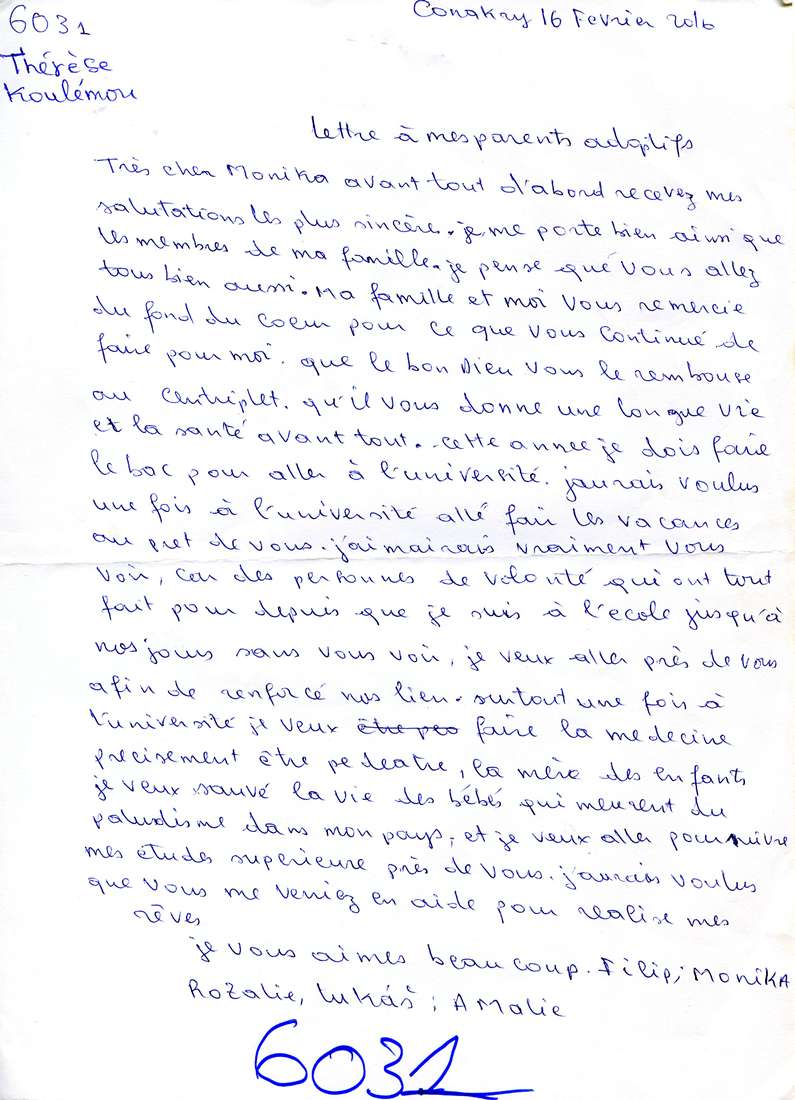 6031
Conakry 16 Fevrier 2016
Thérèse
Koulémou
Lettre à mes parents adoptifs
Très cher Monika avant tout d'abord recevez mes
salutations les plus sincère. je me porte bien ainsi que
les membres de ma famille. je pense que vous allez
tous bien aussi. Ma famille et moi vous remercie
du fond du coeur pour ce que vous continué de
faire pour moi. que le bon Dieu vous le rembouse
au centriplet. qu'il vous donne une longue vie
et la santé avant tout. cette annee je dois faire
le bac pour aller à l'université. jaurais voulus
une fois à l'université allé fair les vacances
au pret de vous. j'aimairais vraiment vous
voir, car des personnes de volonté qui ont tout
fait pour depuis que je suis à l'école jusqu'à
nos jours sans vous voir, je veux aller près de vous
afin de renforcé nos lien. surtout une fois à
l'université je veux être peo faire la medecine
precisement être pedeatre, la mère des enfants
je veux sauvé la vie des bébés qui meurent du
paludisme dans mon pays, et je veux aller poursuivre
mes études superieure près de vous. j'aurais voulus
que vous me veniez en aide pour realise mes
rêves
je vous aimes beaucoup. Filip, Monika
Rozalie, Lukáš, Amalie
6031